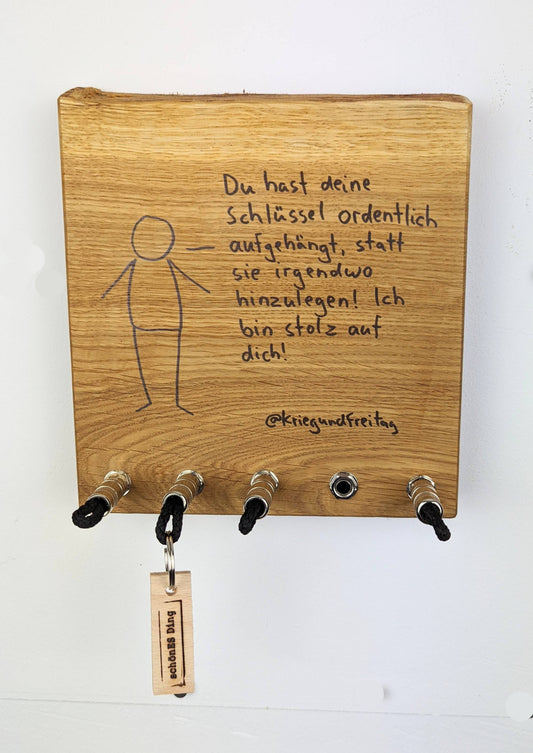 Du hast deine
Schlüssel ordentlich
aufgehängt, statt
sie irgendwo
hinzulegen! Ich
bin stolz auf
dich!
@kriegundfreitag
schönES Ding